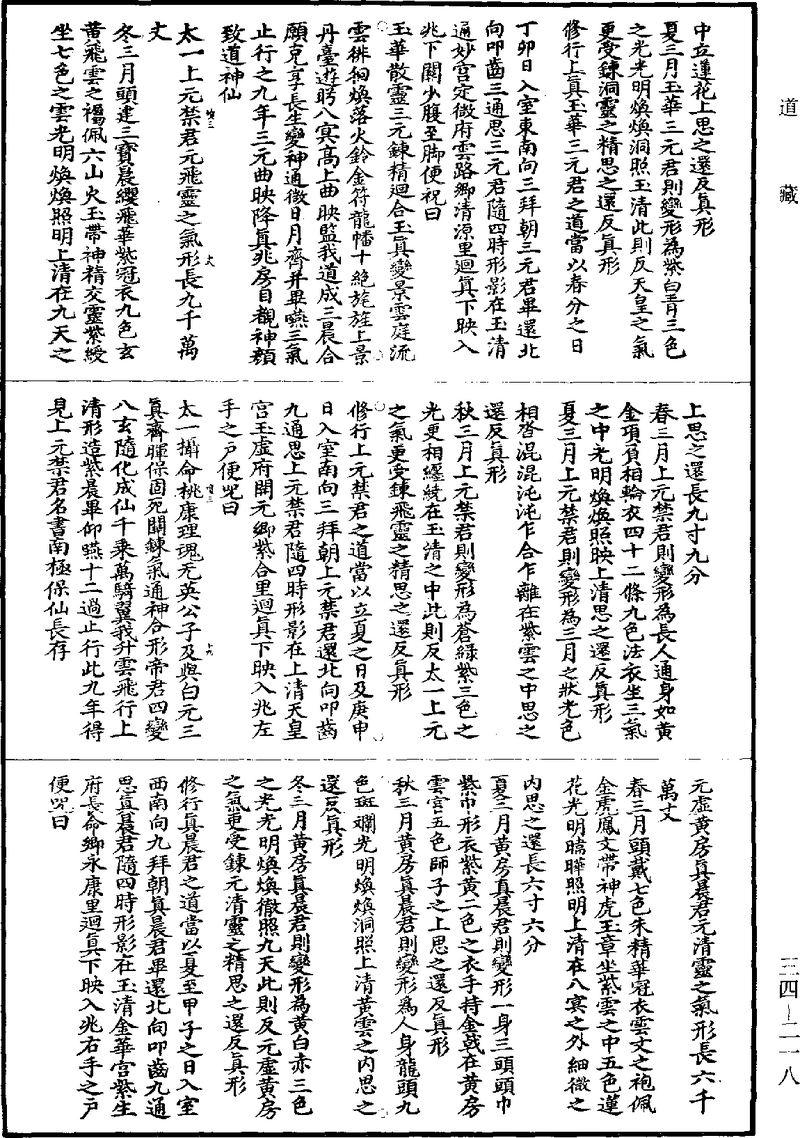 道藏
三四-二一八
中立蓮花上思之還反真形
夏三月玉華三元君則變形為紫白青三色
之光光明煥煥洞照玉清此則反天皇之氣
更受鍊洞靈之精思之還反真形
修行上真玉華三元君之道當以春分之日
丁卯日入室東南向三拜朝三元君畢還北
向叩齒三通思三元君隨四時形影在玉清
通妙宮定徵府雲路鄉清源里迴真下映入
兆下關少腹至脚便祝曰
玉華散靈三元鍊精迴合玉真變景雲庭流
雲徘徊煥落火鈴金符龍幡十絕旄旌上景
丹臺遊眄八冥高上曲映監我道成三晨合
願克享長生變神通徵日月齊并畢嚥三氣
止行之九年三元曲映降真兆房目觀神顏
致道神仙
太一上元禁君元飛靈之氣形長九千萬
丈
冬三月頭建三寶晨纓飛華紫冠衣九色玄
黃飛雲之褐佩六山火玉帶神精交靈紫綬
坐七色之雲光明煥煥照明上清在九天之
上思之還長九寸九分
春三月上元禁君則變形為長人通身如黃
金項負相輪衣四十二條九色法衣坐三氣
之中光明煥煥照映上清思之還反真形
夏三月上元禁君則變形為三月之狀光色
相沓混混沌沌乍合乍離在紫雲之中思之
還反真形
秋三月上元禁君則變形為蒼綠紫三色之
光更相纏繞在玉清之中此則反太一上元
之氣更受鍊飛靈之精思之還反真形
修行上元禁君之道當以立夏之日及庚申
日入室南向三拜朝上元禁君還北向叩齒
九通思上元禁君隨四時形影在上清天皇
宮玉虛府開元鄉紫合里迴真下映入兆左
手之戶便咒曰
太一攝命桃康理魂无英公子及與白元三
真齊暉保固死關鍊氣通神合形帝君四變
八玄隨化成仙千乘萬騎翼我升雲飛行上
清形造紫晨畢仰嚥十二過止行此九年得
見上元禁君名書南極保仙長存
元虛黃房真晨君元清靈之氣形長六千
萬丈
春三月頭戴七色朱精華冠衣雲文之袍佩
金虎鳳文帶神虎玉章坐紫雲之中五色蓮
花光明暠曄照明上清在八冥之外細微之
內思之還長六寸六分
夏三月黃房真晨君則變形一身三頭頭巾
紫巾形衣紫黃二色之衣手持金戟在黃房
雲宮五色師子之上思之還反真形
秋三月黃房真晨君則變形為人身龍頭九
色斑斕光明煥煥洞照上清黃雲之內思之
還反真形
冬三月黃房真晨君則變形為黃白赤三色
之光光明煥煥徹照九天此則反元虛黃房
之氣更受鍊元清靈之精思之還反真形
修行真晨君之道當以夏至甲子之日入室
西南向九拜朝真晨君畢還北向叩齒九通
思真晨君隨四時形影在玉清金華宮紫生
府長命鄉永康里迴真下映入兆右手之戶
便咒曰